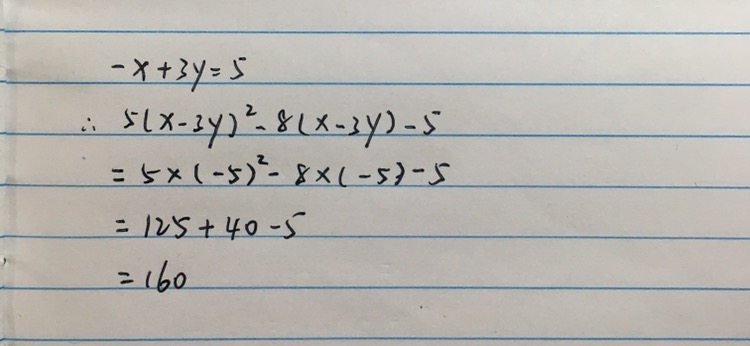 -x+3y=5
∴ 5(x-3y)²-8(x-3y)-5
=5×(-5)²-8×(-5)-5
=125+40-5
=160